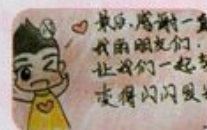 最后，感谢一
我的朋友们，
让我们一起
变得闪闪发